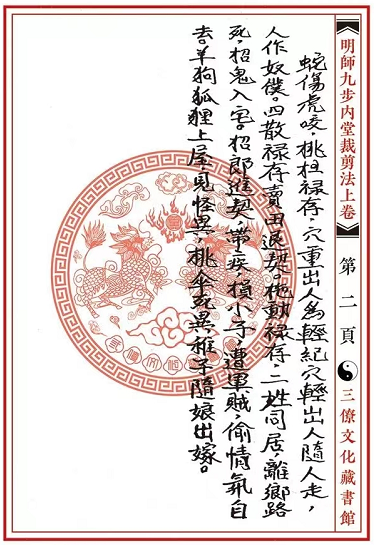 《明師九步内堂裁剪法上卷》 第二頁 三僚文化藏書館
蛇傷虎咬,桃柱禄存,穴重出人為輕紀穴輕出人隨人走,
人作奴僕。四散禄存賣田退契。拖動禄存,二姓同居,離鄉路
死,招鬼入宅。招郎進契,帶疾,損小子,遭軍賊,偷情氣自
去。羊狗狐狸上屋,見怪異,桃伞死異推子隨娘出嫁。